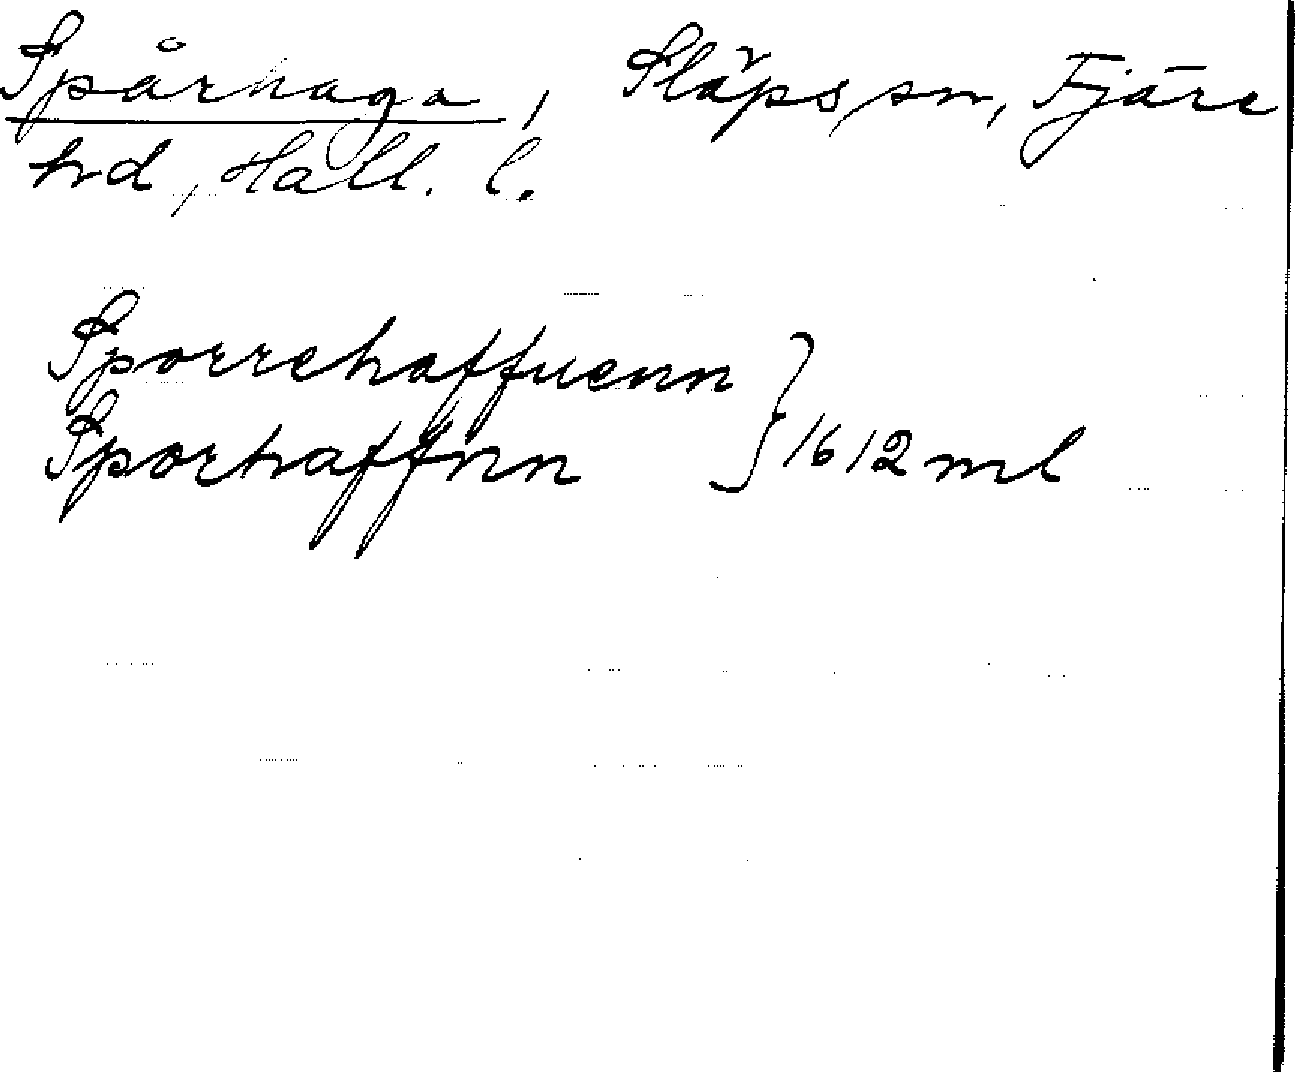 Spårhaga, Släps sn, Fjäre
hd, Hall. l.
Sporrehaffuenn
Sporhaffnn } 1612 ml